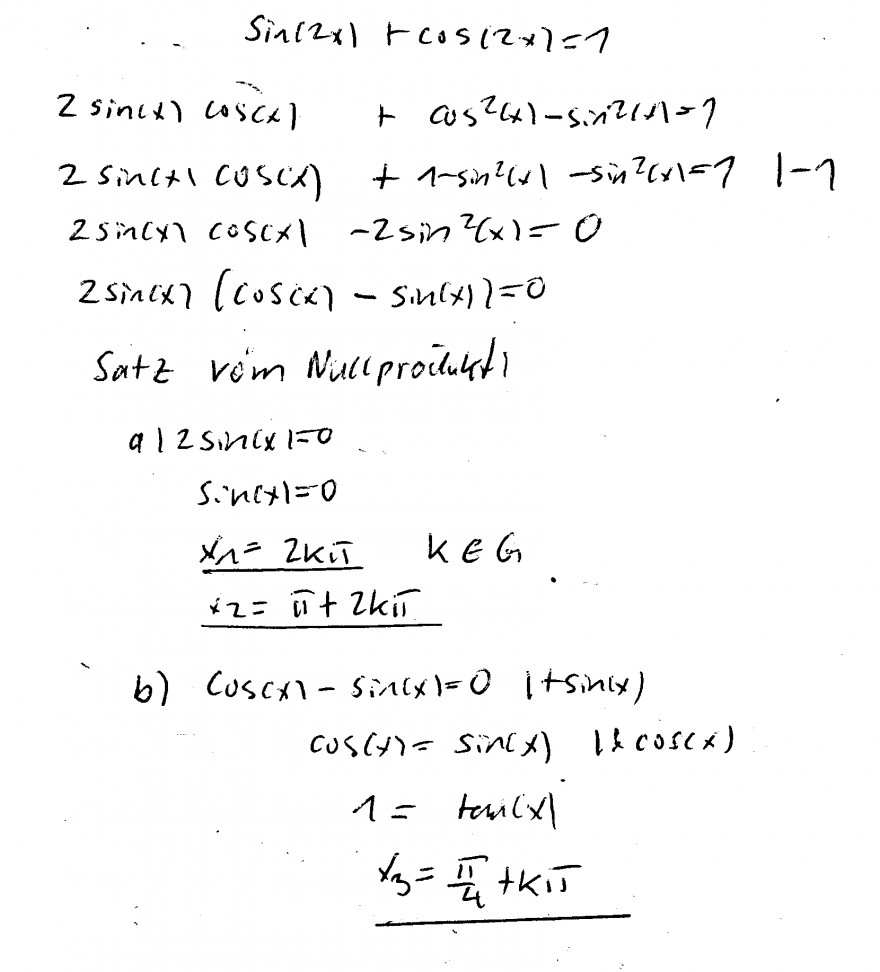 sin(2x) + cos(2x)=1
2 sin(x) cos(x) + cos²(x)-sin²(x)=1
2 sin(x) cos(x) + 1-sin²(x) -sin²(x)=1 |-1
2 sin(x) cos(x) -2 sin²(x)= 0
2 sin(x) (cos(x) - sin(x))=0
Satz vom Nullprodukt:
a) 2 sin(x)=0
sin(x)=0
x1= 2kπ k ∈ G
x2= π+ 2kπ
b) cos(x) - sin(x)=0 |+sin(x)
cos(x)= sin(x) |: cos(x)
1 = tan(x)
x3= π/4 +kπ